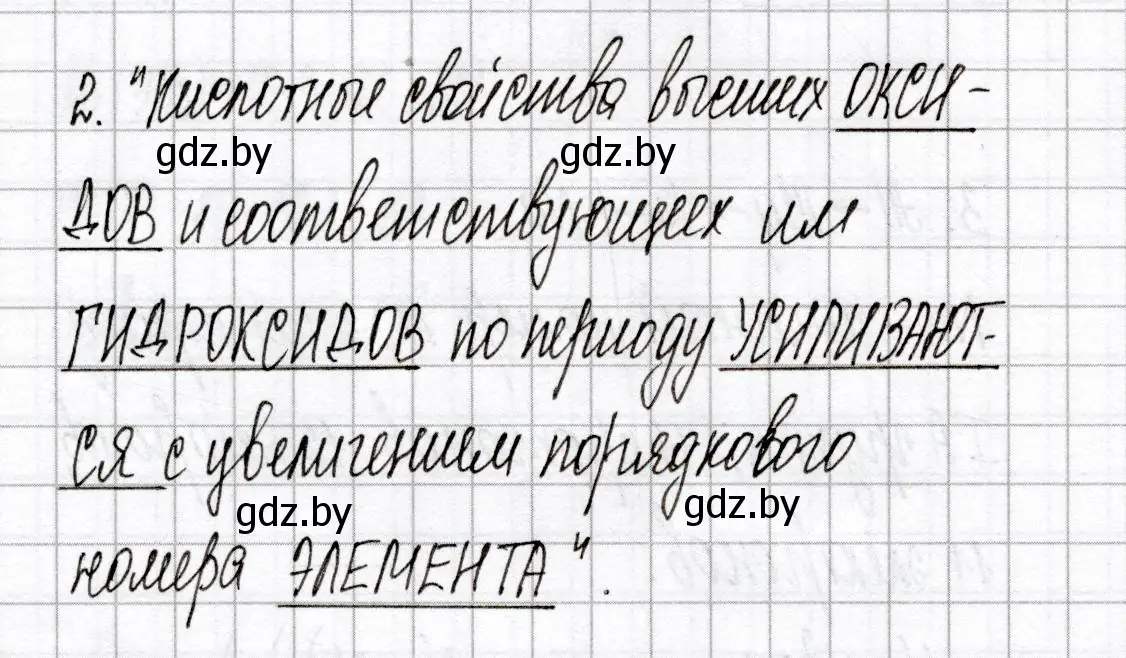 2. "Кислотные свойства высших ОКСИ-
gdz.by gdz.by
ДОВ и соответствующих им
ГИДРОКСИДОВ по периоду УСИЛИВАЮТ-
СЯ с увеличением порядкового
gdz.by gdz.by
номера ЭЛЕМЕНТА".